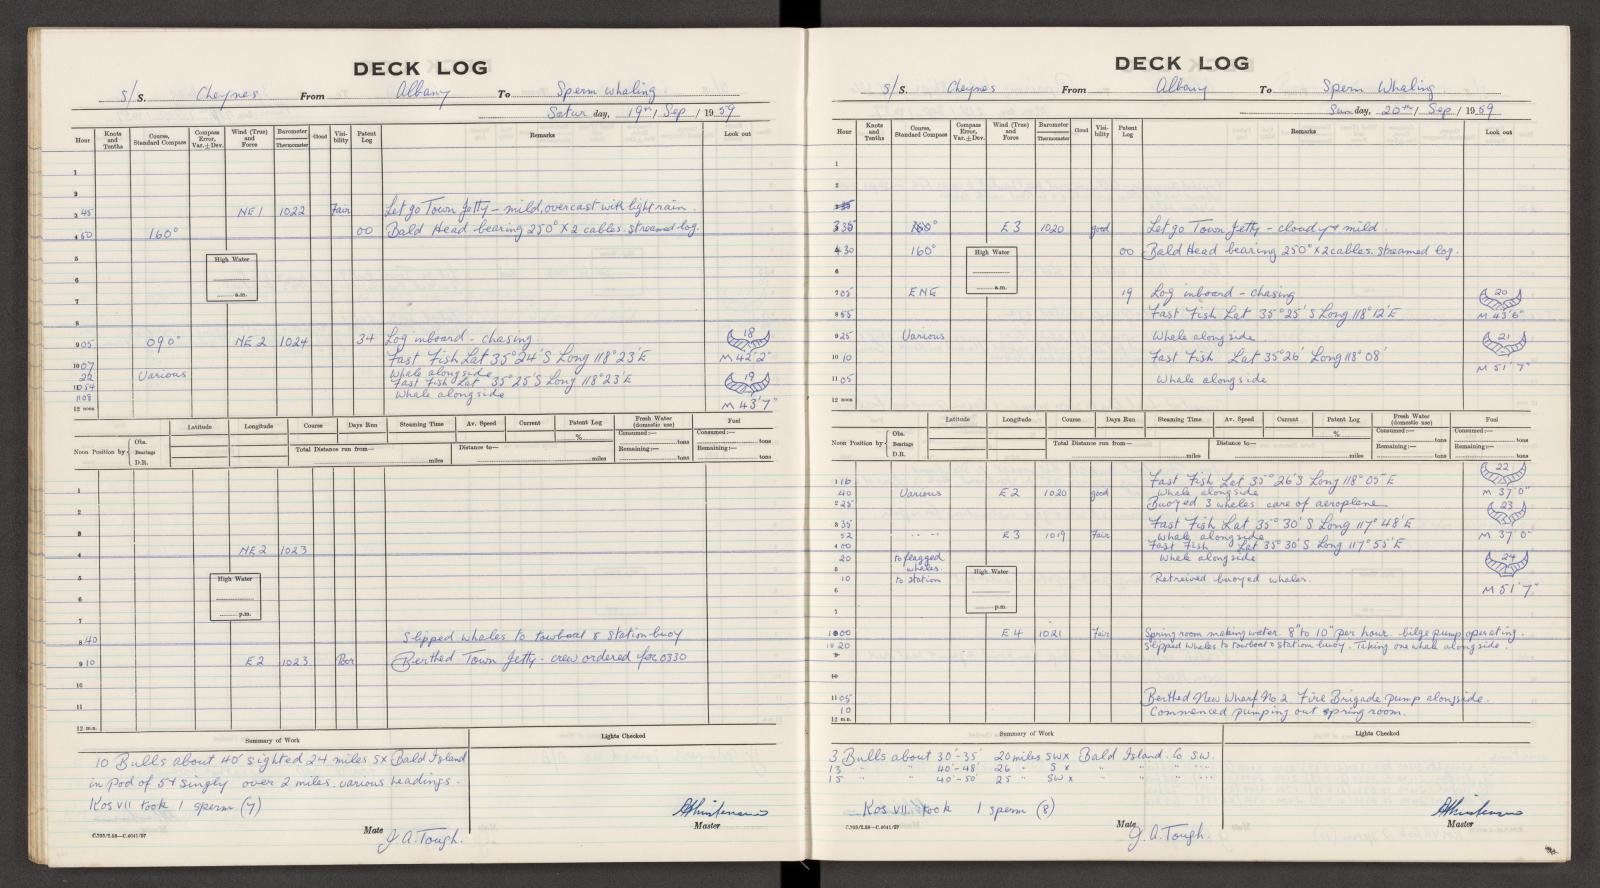 DECK LOG
S/S. Cheynes From Albany To Sperm Whaling
Satur day, 19th / Sep / 1959
Hour Knots and Tenths Course, Standard Compass Compass Error, Var. ± Dev. Wind (True) and Force Barometer Thermometer Cloud Visibility Patent Log Remarks Look out
1
2
3 45 NE 1 1022 Fair Let go Town Jetty - mild, overcast with light rain.
4 50 160° 00 Bald Head bearing 250° x 2 cables. streamed log.
5 High Water
6
7 a.m.
8
9 05 090° NE 2 1024 34 Log inboard - chasing. 18
Fast Fish Lat 35° 24' S Long 118° 23' E M 42' 2"
10 07 Whale alongside
22 Various Fast Fish Lat 35° 25' S Long 118° 23' E 19
11 54
11 08 Whale alongside
12 noon M 43' 7"
Latitude Longitude Course Days Run Steaming Time Av. Speed Current Patent Log Fresh Water (domestic use) Fuel
% Consumed:— tons Consumed:— tons
Noon Position by Obs. Bearings D.R. Total Distance run from— miles Distance to— miles Remaining:— tons Remaining:— tons
1
2
3
4 NE 2 1023
5 High Water
6
7 p.m.
8 40 Slipped whales to towboat & station buoy
9 10 E 2 1023 Berthed Town Jetty - crew ordered for 0330
10
11
12 m.n.
Summary of Work Lights Checked
10 Bulls about 40' sighted 24 miles S x Bald Island
in Pod of 5 + singly over 2 miles. various headings.
Kos VII took 1 sperm (7)
Master
C.705/2.58—C.4041/57 Mate J. A. Tough.
DECK LOG
S/S. Cheynes From Albany To Sperm Whaling
Sun day, 20th / Sep / 1959
Hour Knots and Tenths Course, Standard Compass Compass Error, Var. ± Dev. Wind (True) and Force Barometer Thermometer Cloud Visibility Patent Log Remarks Look out
1
2
3 35 160° E 3 1020 good Let go Town Jetty - cloudy & mild.
4 30 160° 00 Bald Head bearing 250° x 2 cables. streamed log.
High Water
6
a.m.
7 05 ENE 19 Log inboard - chasing 20
8 55 Fast Fish Lat 35° 25' S Long 118° 12' E M 43' 6"
9 25 Various Whale alongside. 21
10 10 Fast Fish Lat 35° 26' Long 118° 08'
11 05 Whale alongside M 51' 7"
12 noon
Latitude Longitude Course Days Run Steaming Time Av. Speed Current Patent Log Fresh Water (domestic use) Fuel
% Consumed:— tons Consumed:— tons
Noon Position by Obs. Bearings D.R. Total Distance run from— miles Distance to— miles Remaining:— tons Remaining:— tons
1 16 Fast Fish Lat 35° 26' S Long 118° 05' E 22
40 Various E 2 1020 good Whale alongside M 37' 0"
2 25 Buoyed 3 whales care of aeroplane 23
3 35 Fast Fish Lat 35° 30' S Long 117° 48' E
52 " " E 3 1019 Fair Whale alongside M 37' 0"
4 00 Fast Fish Lat 35° 30' S Long 117° 55' E
20 to flagged Whale alongside 24
5 whales.
10 to station High Water Retreived buoyed whales.
6 M 51' 7"
7 p.m.
10 00 E 4 1021 Fair Spring room making water 8" to 10" per hour. bilge pump operating.
10 20 Slipped whales to towboat & station buoy. Taking one whale alongside.
11 05 Berthed New Wharf No 2. Fire Brigade pump alongside.
10 Commenced pumping out spring room.
12 m.n.
Summary of Work Lights Checked
3 Bulls about 30'-35' 20 miles SW x Bald Island. Co SW.
13 " " 40'-48' 26 " S x " " " "
15 " " 40'-50' 25 " SW x " " " "
Kos VII took 1 sperm (8)
Master
C.705/2.58—C.4041/57 Mate J. A. Tough.